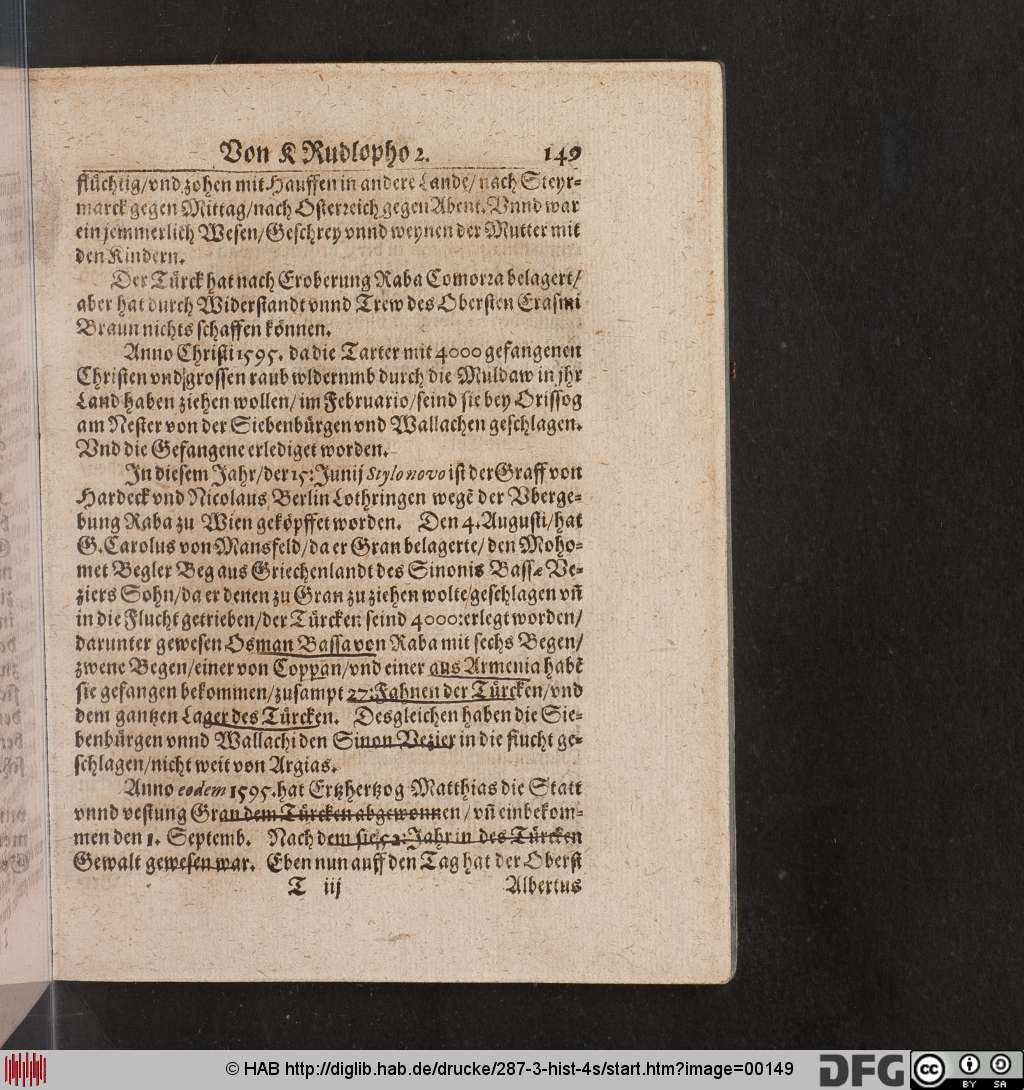 Von K Rudlopho 2. 149
flüchtig/vnd zohen mit Hauffen in andere Lande/nach Steyr-
marck gegen Mittag/nach Osterreich gegen Abent. Vnnd war
ein jemmerlich Wesen/Geschrey vnnd weynen der Mutter mit
den Kindern.
Der Türck hat nach Eroberung Raba Comorra belagert/
aber hat durch Widerstandt vnnd Trew des Obersten Erasmi
Braun nichts schaffen können.
Anno Christi 1595. da die Tarter mit 4000 gefangenen
Christen vnd grossen raub wldernmb durch die Muldaw in jhr
Land haben ziehen wollen/im Februario/seind sie bey Orissog
am Nester von der Siebenbürgen vnd Wallachen geschlagen.
Vnd die Gefangene erlediget worden.
In diesem Jahr/der 15: Junij Stylo novo ist der Graff von
Hardeck vnd Nicolaus Berlin Lothringen wegẽ der Vberge-
bung Raba zu Wien geköpffet worden. Den 4. Augusti/hat
G. Carolus von Mansfeld/da er Gran belagerte/den Moho-
met Begler Beg aus Griechenlandt des Sinonis Bassæ Ve-
ziers Sohn/da er denen zu Gran zu ziehen wolte/geschlagen vñ
in die Flucht getrieben/der Türcken seind 4000: erlegt worden/
darunter gewesen Osman Bassa von Raba mit sechs Begen/
zwene Begen/einer von Coppan/vnd einer aus Armenia habẽ
sie gefangen bekommen/zusampt 27: Fahnen der Türcken/vnd
dem gantzen Lager des Türcken. Desgleichen haben die Sie-
benbürgen vnnd Wallachi den Sinon Vezier in die flucht ge-
schlagen/nicht weit von Argias.
Anno eodem 1595. hat Ertzhertzog Matthias die Statt
vnnd vestung Gran dem Türcken abgewonnen/vñ einbekom-
men den 1. Septemb. Nach dem sie 52: Jahr in des Türcken
Gewalt gewesen war. Eben nun auff den Tag hat der Oberst
T iij Albertus
© HAB http://diglib.hab.de/drucke/287-3-hist-4s/start.htm?image=00149
DFG
cc BY SA